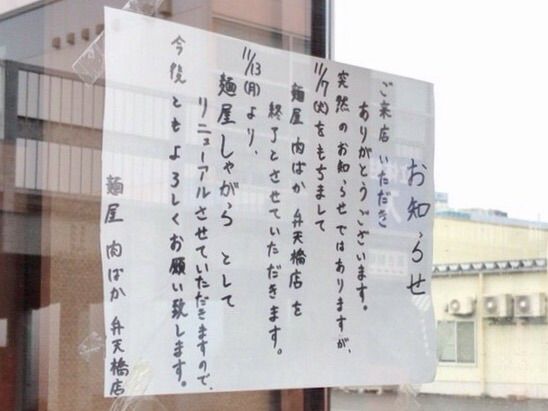 お知らせ
ご来店いただき
ありがとうございます。
突然のお知らせではありますが、
11/7(火)をもちまして
麺屋 肉ばか 弁天橋店を
終了とさせていただきます。
11/13(月)より、
麺屋しゃがら として
リニューアルさせていただきますので、
今後ともよろしくお願い致します。
麺屋 肉ばか 弁天橋店